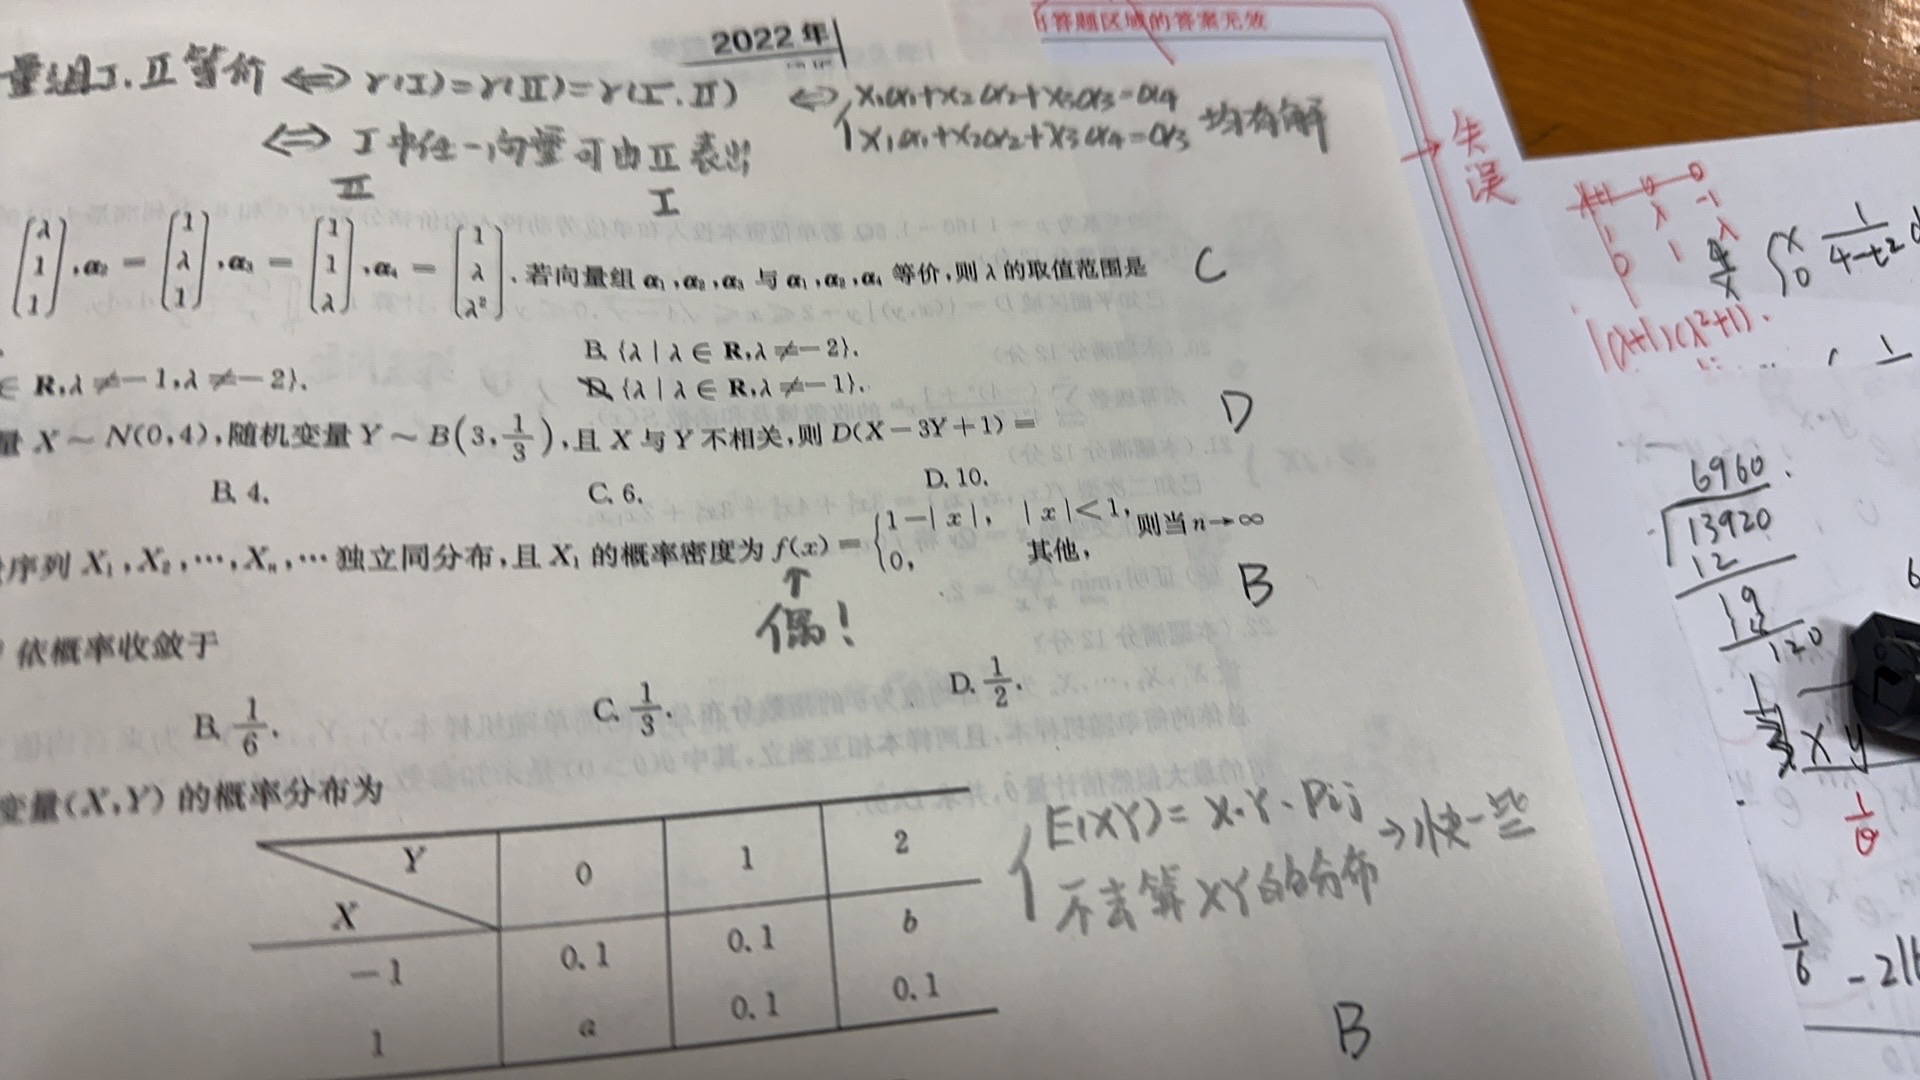 2022年
量组I.II等价 ⟺ r(I)=r(II)=r(I.II) ⟺ { x₁α₁+x₂α₂+x₃α₃=α₄
x₁α₁+x₂α₂+x₃α₄=α₃ 均有解
⟺ I中任一向量可由II表出
II I
(λ 1 1), α₂ = (1 λ 1), α₃ = (1 1 λ), α₄ = (1 λ λ²). 若向量组 α₁,α₂,α₃ 与 α₁,α₂,α₄ 等价,则 λ 的取值范围是 C
B. {λ | λ ∈ R,λ ≠ −2}.
∈ R,λ ≠ −1,λ ≠ −2}. D. {λ | λ ∈ R,λ ≠ −1}.
量 X ~ N(0,4),随机变量 Y ~ B(3,1/3),且 X 与 Y 不相关,则 D(X − 3Y + 1) = D
B. 4. C. 6. D. 10.
序列 X₁,X₂,…,Xₙ,… 独立同分布,且 X₁ 的概率密度为 f(x) = { 1−|x|, |x|<1, 0, 其他, 则当 n→∞
↑ B
偶!
依概率收敛于
B. 1/6. C. 1/3. D. 1/2.
变量(X,Y) 的概率分布为
Y 0 1 2
X
−1 0.1 0.1 b
1 a 0.1 0.1
{ E(XY)=X·Y·Pij →快一些
不去算XY的分布
B
答题区域的答案无效
→失误
λ −1
1 λ
0 1
(λ+1)(λ²+1).
∫₀ˣ 1/(4−t²) d
6960
13920
12
19
120
xy
1/θ
1/6 −2